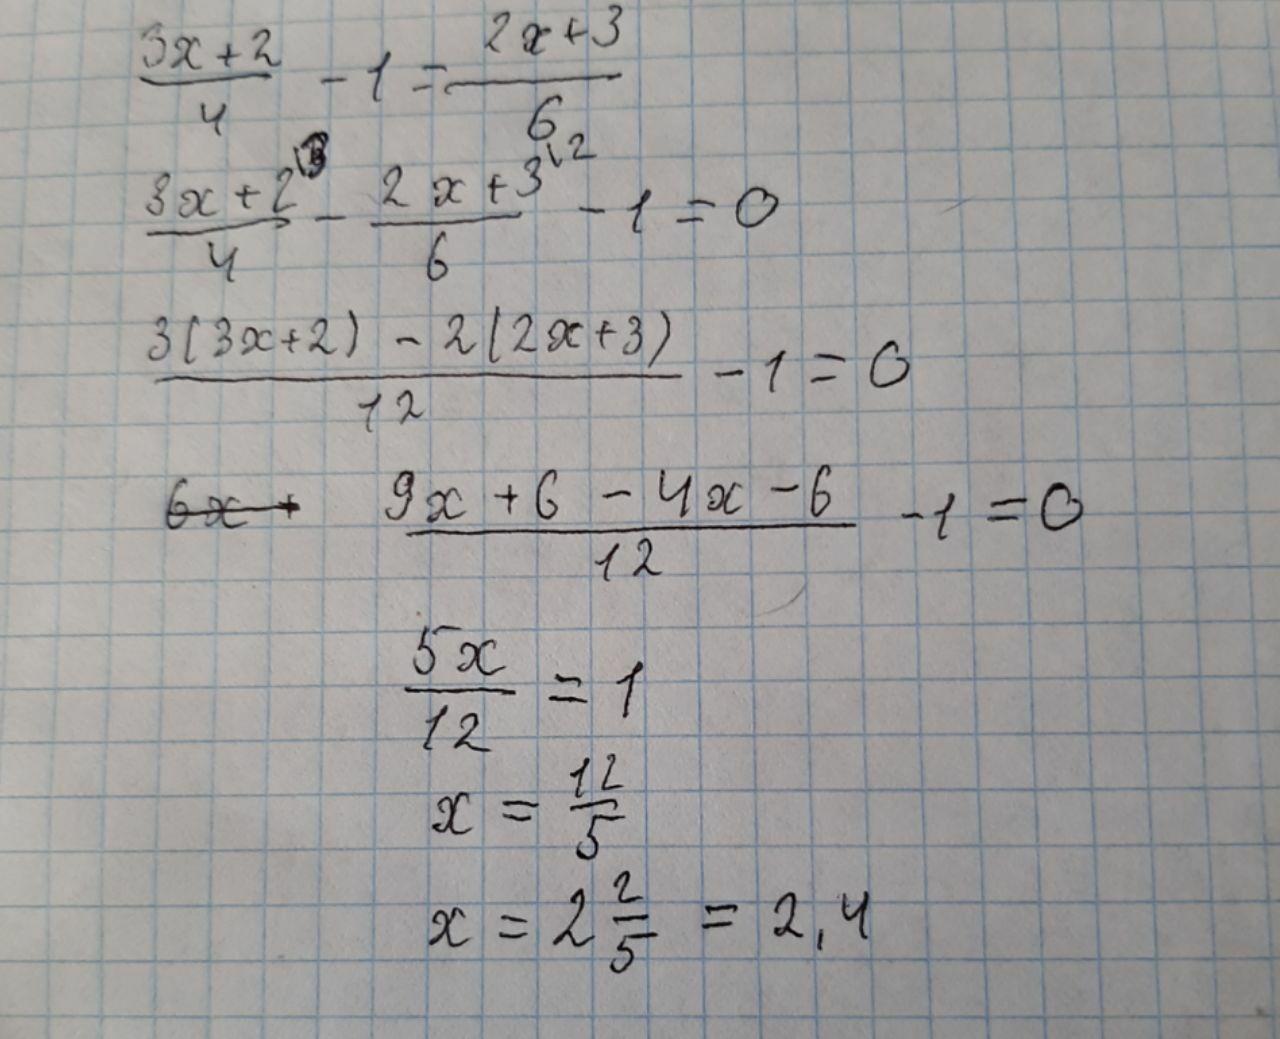 (3x+2)/4 - 1 = (2x+3)/6
(3x+2)/4 \3 - (2x+3)/6 \2 - 1 = 0
(3(3x+2) - 2(2x+3))/12 - 1 = 0
6x + (9x + 6 - 4x - 6)/12 - 1 = 0
5x/12 = 1
x = 12/5
x = 2 2/5 = 2,4